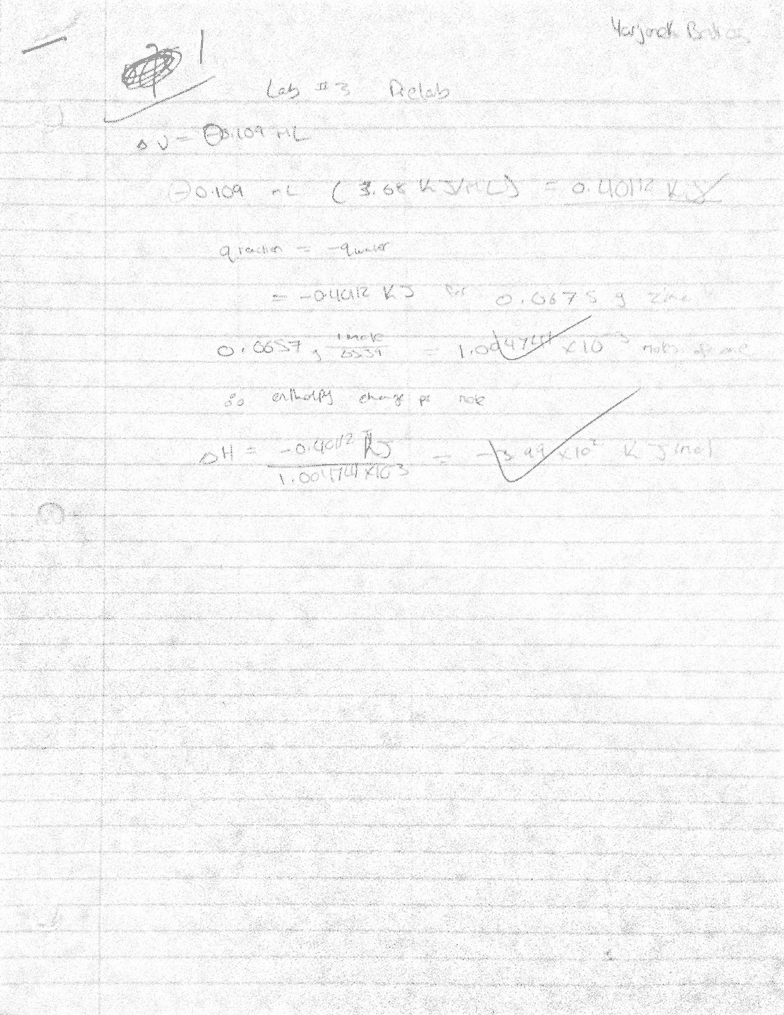 1
Lab #3 Prelab
ΔV = -0.109 mL
-0.109 mL (3.68 KJ/mL) = 0.40112 KJ
q reaction = -q water
= -0.40112 KJ for 0.0675 g zinc
0.0657 g 1 mole = 1.004741 x10⁻³ moles of
∴ enthalpy change per mole
ΔH = -0.40112 KJ / 1.004741 x10⁻³ = -3.99 x10² KJ/mol